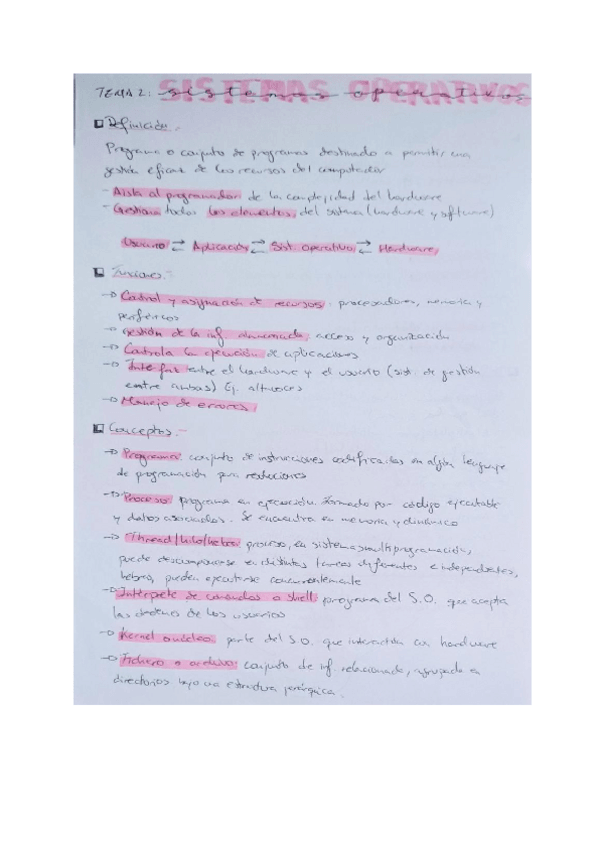 TEMA 2: SISTEMAS OPERATIVOS
Definición.-
Programa o conjunto de programas destinado a permitir una
gestión eficaz de los recursos del computador
- Aisla al programador de la complejidad del hardware
- Gestiona todos los elementos del sistema (hardware y software)
Usuario ⇄ Aplicación ⇄ Sist. operativo ⇄ Hardware
Funciones.-
→ Control y asignación de recursos: procesadores, memoria y
periféricos
→ Gestión de la inf. almacenada: acceso y organización
→ Controla la ejecución de aplicaciones
→ Interfaz entre el hardware y el usuario (sist. de gestión
entre ambos) Ej. altavoces
→ Manejo de errores
Conceptos.-
→ Programa: conjunto de instrucciones codificadas en algún lenguaje
de programación para
→ Proceso: programa en ejecución. Formado por código ejecutable
y datos asociados. Se encuentra en memoria y dinámico
→ Thread/hilo/hebra: proceso, en sistemas multiprogramación,
puede descomponerse en distintas tareas diferentes e independientes,
hebras, pueden ejecutarse concurrentemente
→ Intérprete de comandos o shell: programa del S.O. que acepta
las órdenes de los usuarios
→ Kernel o núcleo: parte del S.O. que interactúa con hardware
→ Fichero o archivo: conjunto de inf. relacionada, agrupada en
directorios bajo una estructura jerárquica.